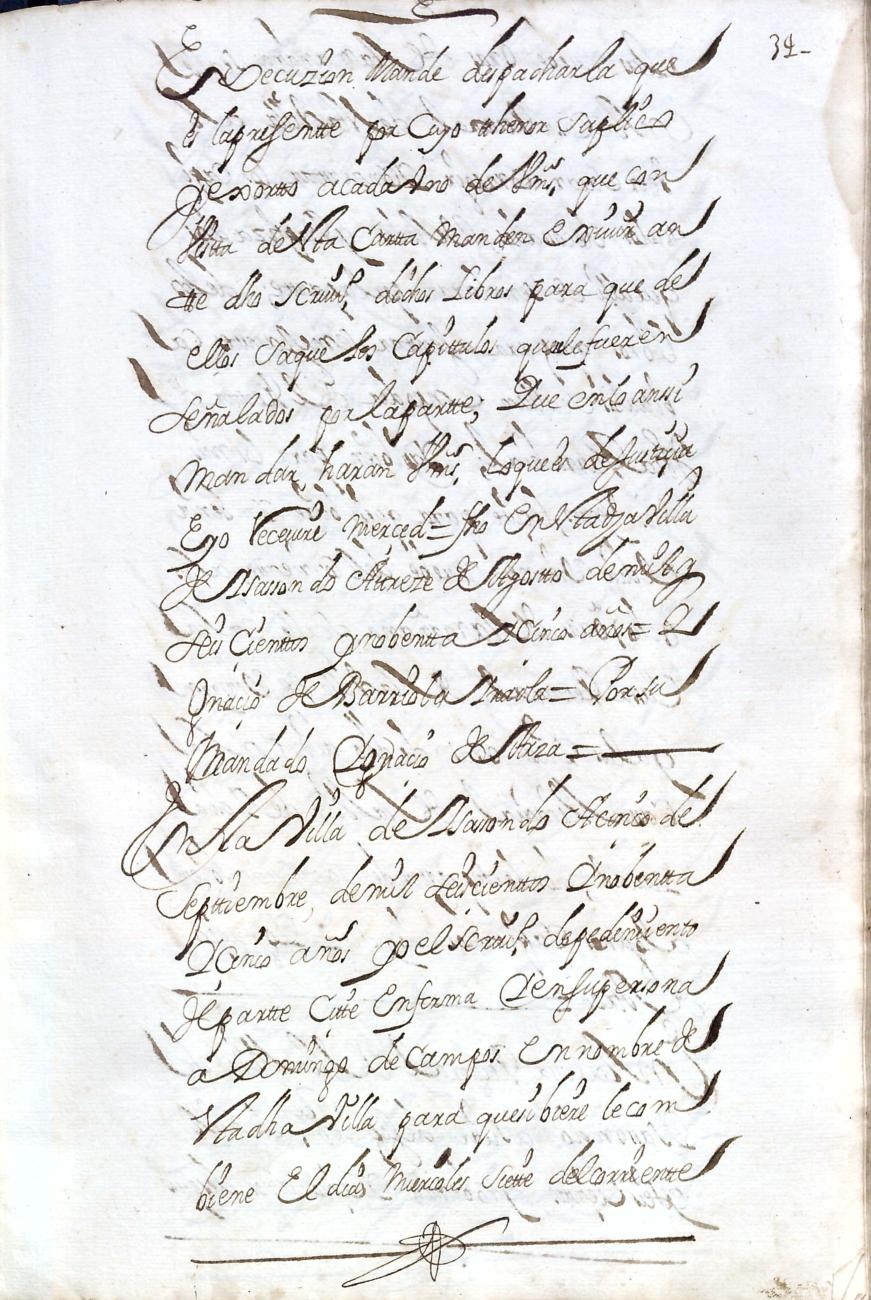 34
Execuzion Mande despacharla que
es la pressentte por Cuyo tthenor suplico
y exortto a cada Vno de Vms, que con
Vistta de Vta Cartta Manden Exivir an
tte dho scriuº, dichos Libros para que de
ellos saque los Capitulos que le fueren
señalados por la partte, Que en lo anssi
Mandar, haran Vms, lo que es de Justtiçia
E yo Receuire merced= fho En Vta dha Villa
de Asaron do A treze de Agostto de mil y
seis Cienttos y nobentta y Cinco años= D
Ygnaçio de Barrio y = Por su
Mandado Ygnacio de =
En la Villa de do A cinco de
Septtiembre, de mil seiscienttos y nobentta
y Cinco años yo el scriuº, de pedimiento
de partte Citte En forma y en su persona
a Domingo de Campos En nombre de
Vta dha Villa para que si biere le com
biene El dia Miercoles Siette del corriente